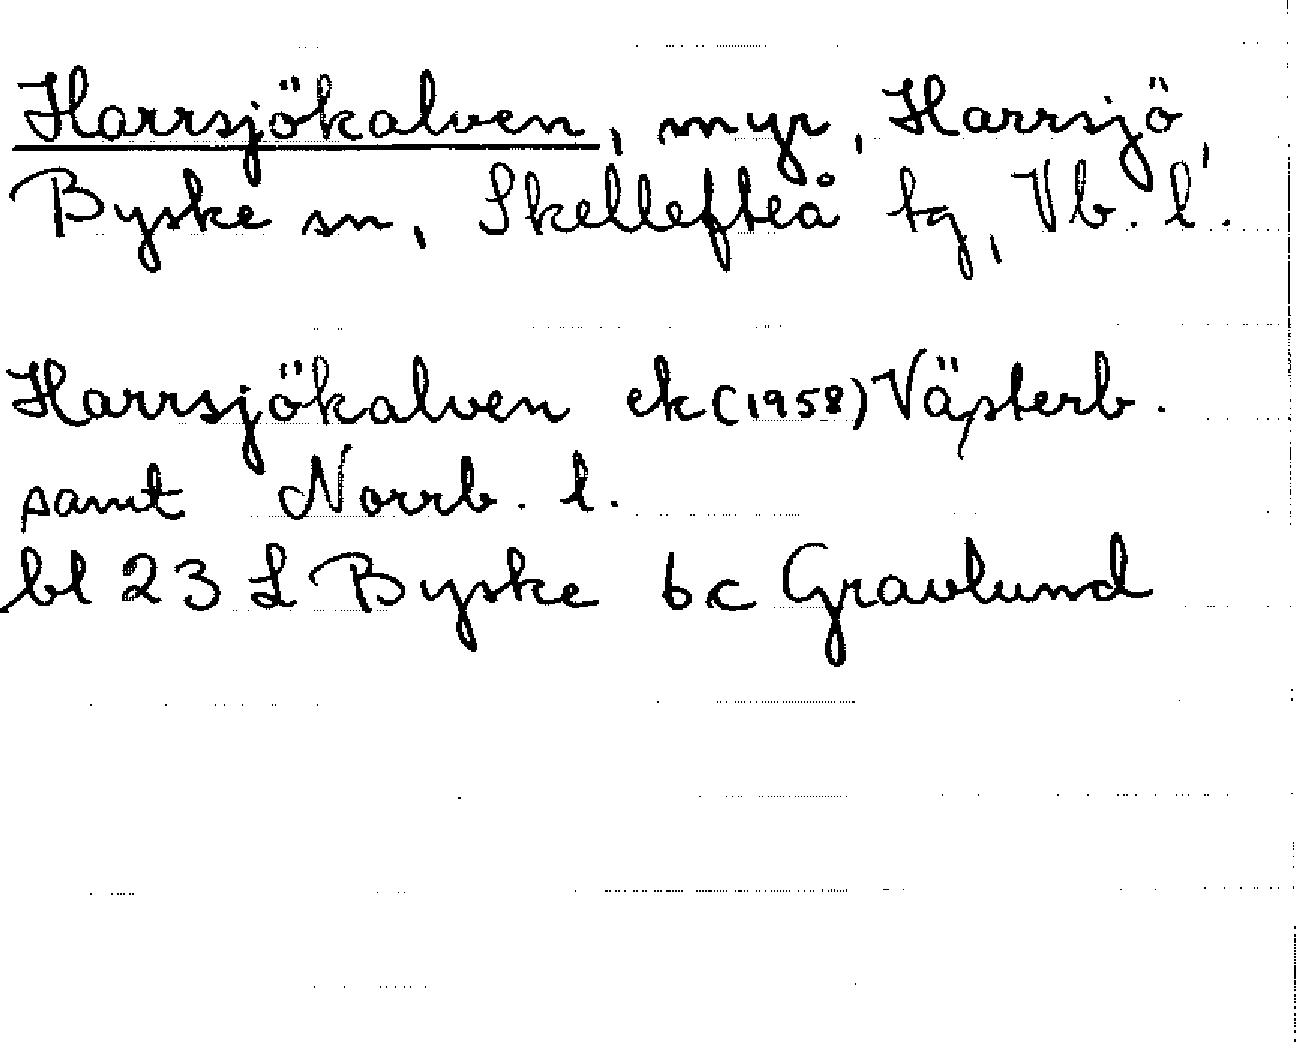 Harrsjökalven, myr, Harrsjö,
Byske sn, Skellefteå tg, Vb. l.
Harrsjökalven ek (1958) Västerb.
samt Norrb. l.
bl 23 L Byske bc Gravlund